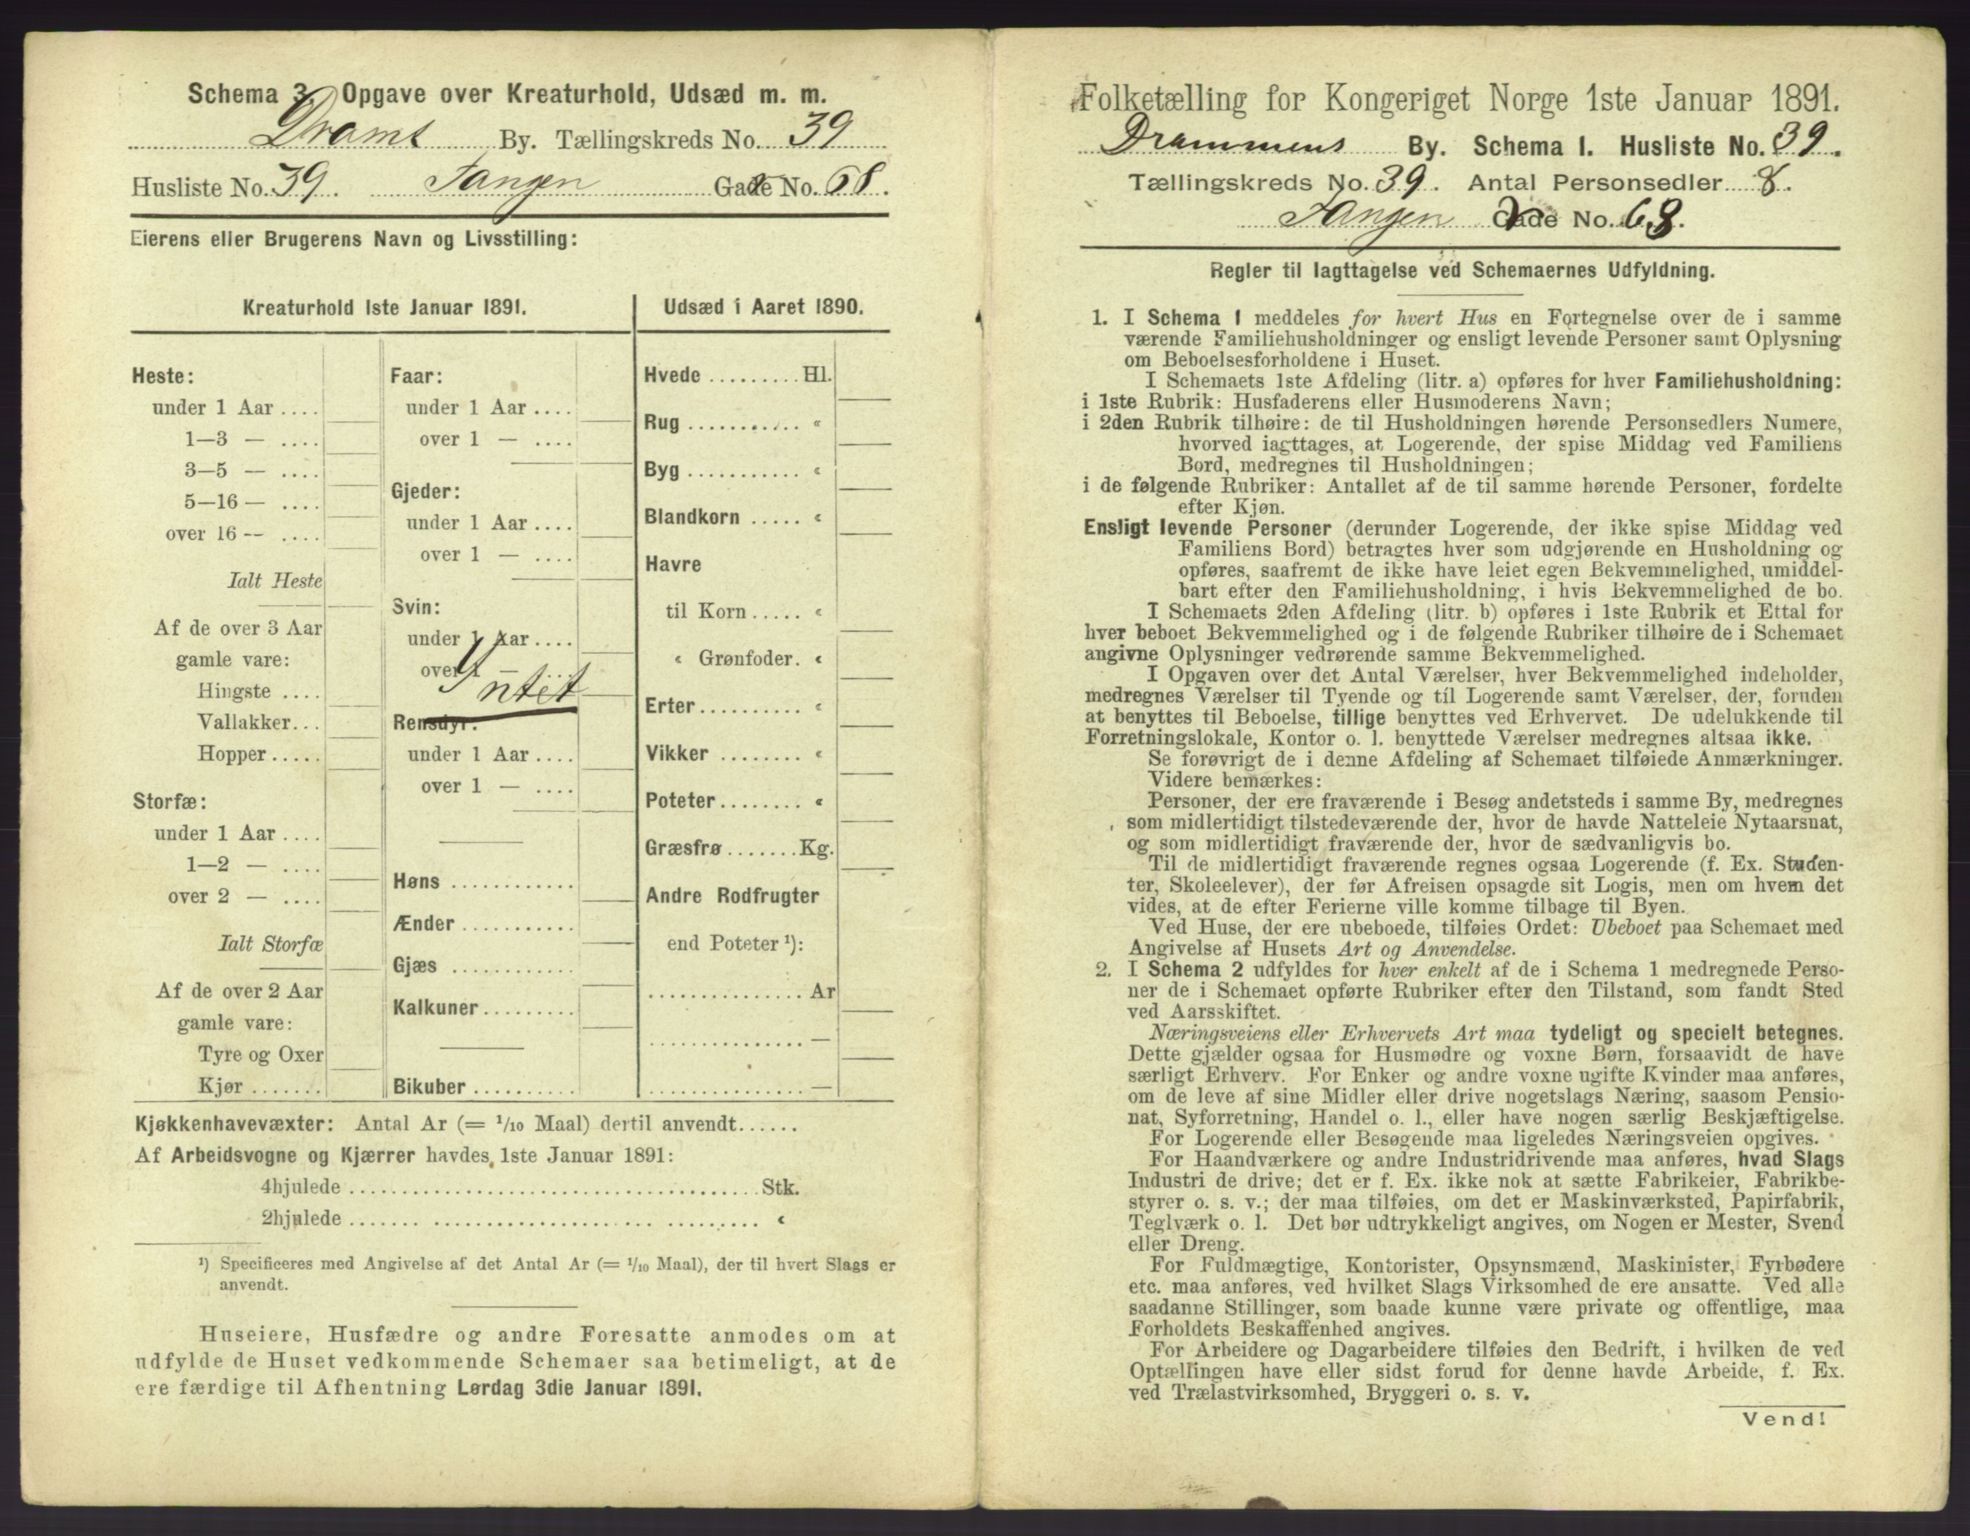 Schema 3. Opgave over Kreaturhold, Udsæd m. m.
Dramt By. Tællingskreds No. 39
Husliste No. 39. Tangen Gade No. 68.
Eierens eller Brugerens Navn og Livsstilling:
Kreaturhold 1ste Januar 1891.
Heste:
under 1 Aar ....
1—3 — ....
3—5 — ....
5—16 — ....
over 16 — ....
Ialt Heste
Af de over 3 Aar
gamle vare:
Hingste ....
Vallakker...
Hopper.....
Storfæ:
under 1 Aar ....
1—2 — ....
over 2 — ....
Ialt Storfæ
Af de over 2 Aar
gamle vare:
Tyre og Oxer
Kjør .......
Faar:
under 1 Aar ....
over 1 — ....
Gjeder:
under 1 Aar ....
over 1 — ....
Svin:
under 1 Aar....
over 1 — ....
Intet
Rensdyr:
under 1 Aar ....
over 1 — ....
Høns ............
Ænder ...........
Gjæs ............
Kalkuner.........
Bikuber ..........
Udsæd i Aaret 1890.
Hvede ......... Hl.
Rug ........... "
Byg ........... "
Blandkorn ..... "
Havre
til Korn ..... "
" Grønfoder. "
Erter.......... "
Vikker ........ "
Poteter........ "
Græsfrø....... Kg.
Andre Rodfrugter
end Poteter ¹):
............... Ar
............... —
............... —
Kjøkkenhavevæxter: Antal Ar (= 1/10 Maal) dertil anvendt......
Af Arbeidsvogne og Kjærrer havdes 1ste Januar 1891:
4hjulede ........................................ Stk.
2hjulede ........................................ "
¹) Specificeres med Angivelse af det Antal Ar (= 1/10 Maal), der til hvert Slags er
anvendt.
Huseiere, Husfædre og andre Foresatte anmodes om at
udfylde de Huset vedkommende Schemaer saa betimeligt, at de
ere færdige til Afhentning Lørdag 3die Januar 1891.
Folketælling for Kongeriget Norge 1ste Januar 1891.
Drammens By. Schema 1. Husliste No. 39.
Tællingskreds No. 39. Antal Personsedler 8.
Tangen Gade No. 68.
Regler til Iagttagelse ved Schemaernes Udfyldning.
1. I Schema 1 meddeles for hvert Hus en Fortegnelse over de i samme
værende Familiehusholdninger og ensligt levende Personer samt Oplysning
om Beboelsesforholdene i Huset.
I Schemaets 1ste Afdeling (litr. a) opføres for hver Familiehusholdning:
i 1ste Rubrik: Husfaderens eller Husmoderens Navn;
i 2den Rubrik tilhøire: de til Husholdningen hørende Personsedlers Numere,
hvorved iagttages, at Logerende, der spise Middag ved Familiens
Bord, medregnes til Husholdningen;
i de følgende Rubriker: Antallet af de til samme hørende Personer, fordelte
efter Kjøn.
Ensligt levende Personer (derunder Logerende, der ikke spise Middag ved
Familiens Bord) betragtes hver som udgjørende en Husholdning og
opføres, saafremt de ikke have leiet egen Bekvemmelighed, umiddel-
bart efter den Familiehusholdning, i hvis Bekvemmelighed de bo.
I Schemaets 2den Afdeling (litr. b) opføres i 1ste Rubrik et Ettal for
hver beboet Bekvemmelighed og i de følgende Rubriker tilhøire de i Schemaet
angivne Oplysninger vedrørende samme Bekvemmelighed.
I Opgaven over det Antal Værelser, hver Bekvemmelighed indeholder,
medregnes Værelser til Tyende og til Logerende samt Værelser, der, foruden
at benyttes til Beboelse, tillige benyttes ved Erhvervet. De udelukkende til
Forretningslokale, Kontor o. l. benyttede Værelser medregnes altsaa ikke.
Se forøvrigt de i denne Afdeling af Schemaet tilføiede Anmærkninger.
Videre bemærkes:
Personer, der ere fraværende i Besøg andetsteds i samme By, medregnes
som midlertidigt tilstedeværende der, hvor de havde Natteleie Nytaarsnat,
og som midlertidigt fraværende der, hvor de sædvanligvis bo.
Til de midlertidigt fraværende regnes ogsaa Logerende (f. Ex. Studen-
ter, Skoleelever), der før Afreisen opsagde sit Logis, men om hvem det
vides, at de efter Ferierne ville komme tilbage til Byen.
Ved Huse, der ere ubeboede, tilføies Ordet: Ubeboet paa Schemaet med
Angivelse af Husets Art og Anvendelse.
2. I Schema 2 udfyldes for hver enkelt af de i Schema 1 medregnede Perso-
ner de i Schemaet opførte Rubriker efter den Tilstand, som fandt Sted
ved Aarsskiftet.
Næringsveiens eller Erhvervets Art maa tydeligt og specielt betegnes.
Dette gjælder ogsaa for Husmødre og voxne Børn, forsaavidt de have
særligt Erhverv. For Enker og andre voxne ugifte Kvinder maa anføres,
om de leve af sine Midler eller drive nogetslags Næring, saasom Pensio-
nat, Syforretning, Handel o. l., eller have nogen særlig Beskjæftigelse.
For Logerende eller Besøgende maa ligeledes Næringsveien opgives.
For Haandværkere og andre Industridrivende maa anføres, hvad Slags
Industri de drive; det er f. Ex. ikke nok at sætte Fabrikeier, Fabrikbe-
styrer o. s. v.; der maa tilføies, om det er Maskinværksted, Papirfabrik,
Teglværk o. l. Det bør udtrykkeligt angives, om Nogen er Mester, Svend
eller Dreng.
For Fuldmægtige, Kontorister, Opsynsmænd, Maskinister, Fyrbødere
etc. maa anføres, ved hvilket Slags Virksomhed de ere ansatte. Ved alle
saadanne Stillinger, som baade kunne være private og offentlige, maa
Forholdets Beskaffenhed angives.
For Arbeidere og Dagarbeidere tilføies den Bedrift, i hvilken de ved
Optællingen have eller sidst forud for denne havde Arbeide, f. Ex.
ved Trælastvirksomhed, Bryggeri o. s. v.
Vend!